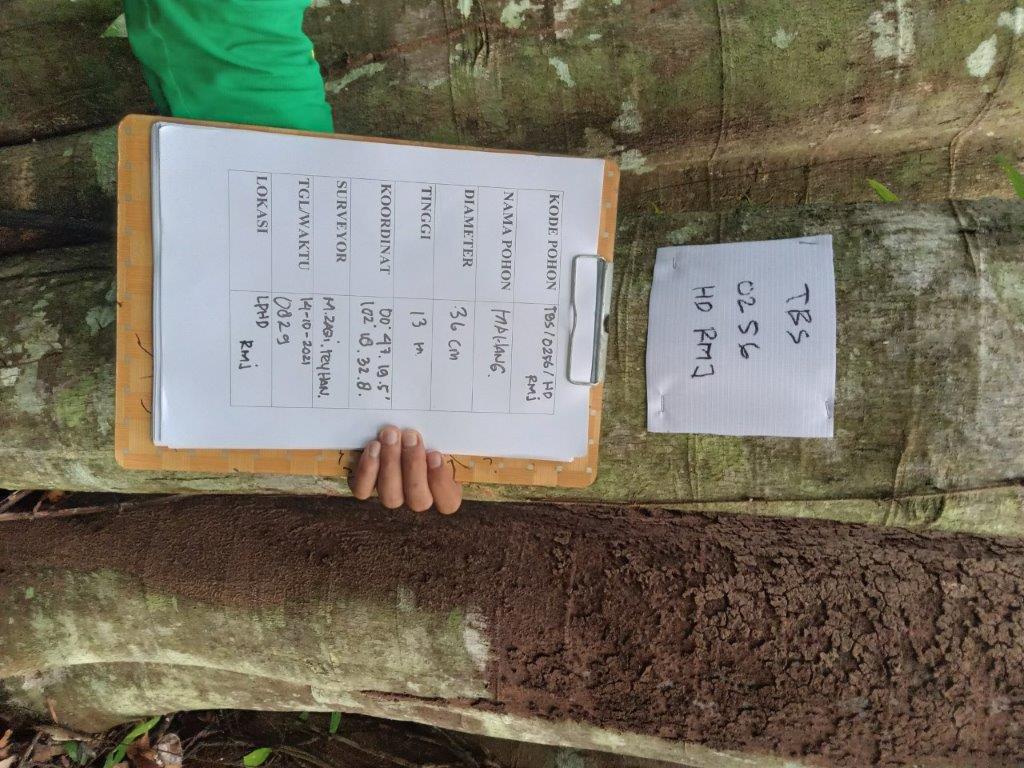 TBS
0256
HD RMJ
KODE POHON TBS/0256/HD
RMJ
NAMA POHON MAHANG.
DIAMETER 36 cm
TINGGI 13 m
KOORDINAT 00° 47. 19.5'
102° 18. 32.8.
SURVEYOR M. ZAGI. REYHAN.
TGL/WAKTU 14-10-2021
0829
LOKASI LPHD
RMJ